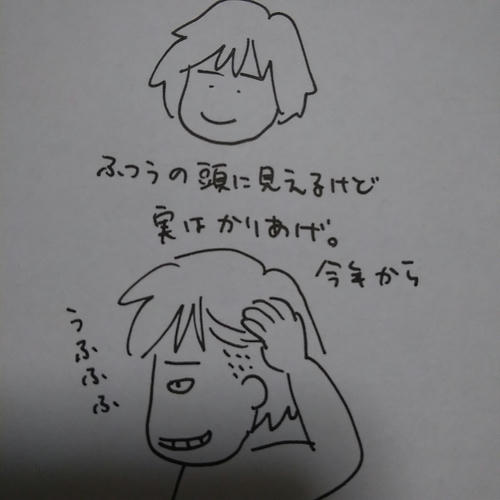 ふつうの頭に見えるけど
実はかりあげ。
今年から
うふふふ